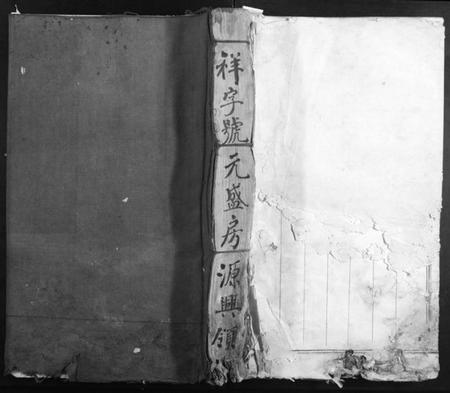 祥字號元盛房源興領